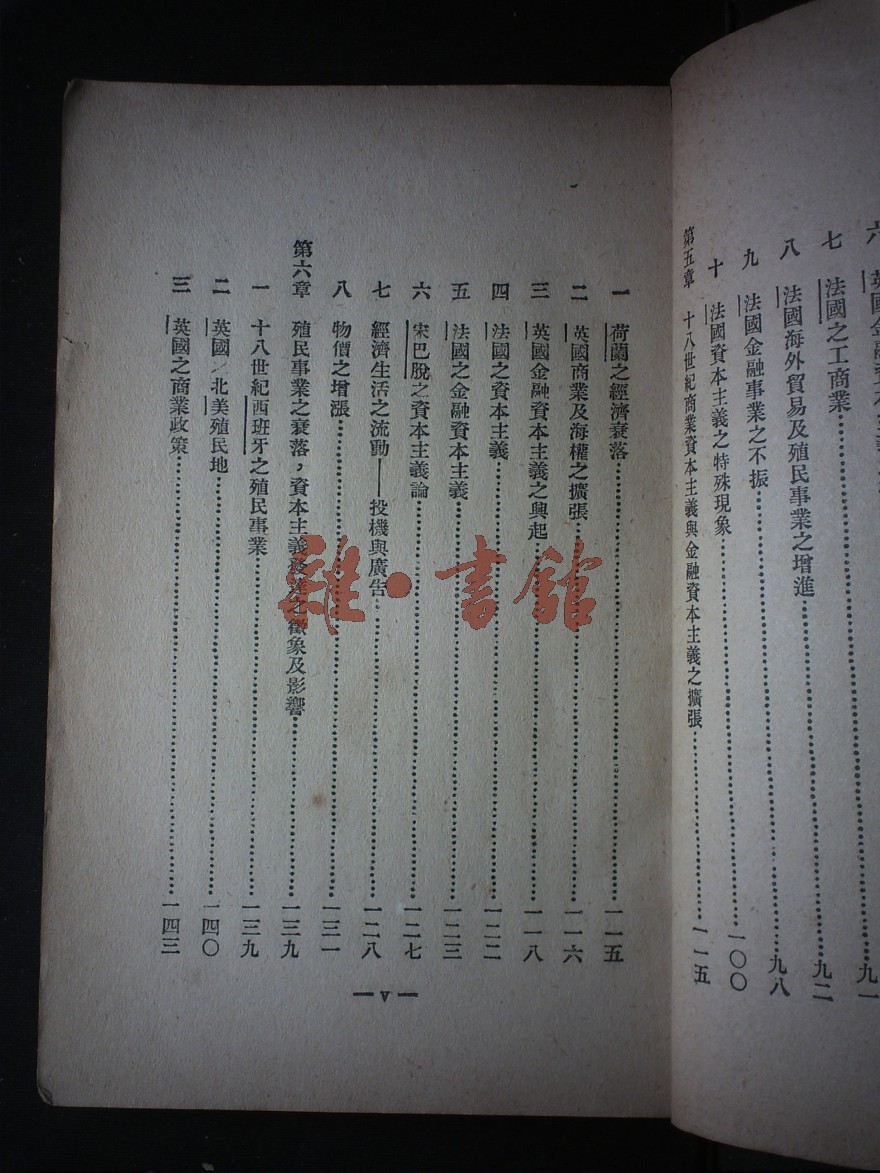 七　法國之工商業……九二
八　法國海外貿易及殖民事業之增進……九八
九　法國金融事業之不振……一〇〇
十　法國資本主義之特殊現象
第五章　十八世紀商業資本主義與金融資本主義之擴張……一一五
一　荷蘭之經濟衰落……一一五
二　英國商業及海權之擴張……一一六
三　英國金融資本主義之興起……一一八
四　法國之資本主義……一二二
五　法國之金融資本主義……一二三
六　宋巴脫之資本主義論……一二七
七　經濟生活之流動——投機與廣告……一二八
八　物價之增漲……一三一
第六章　殖民事業之衰落，資本主義發達之徵象及影響……一三九
一　十八世紀西班牙之殖民事業……一三九
二　英國北美殖民地……一四〇
三　英國之商業政策……一四三
— V —
雜·書館